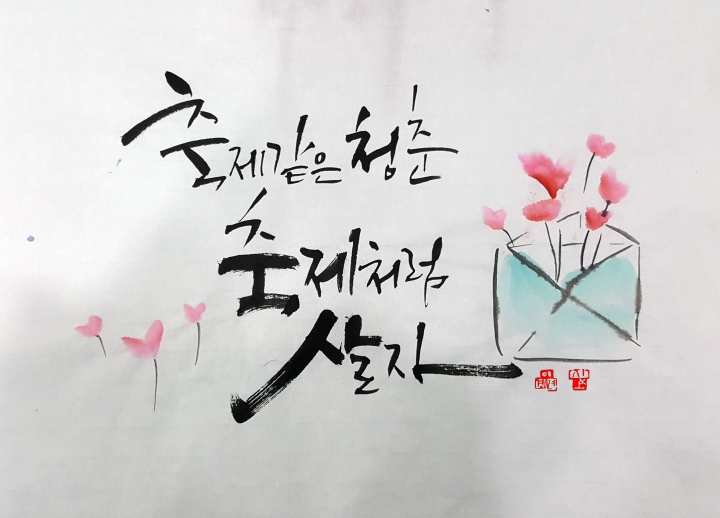 축제같은 청춘
축제처럼
살자